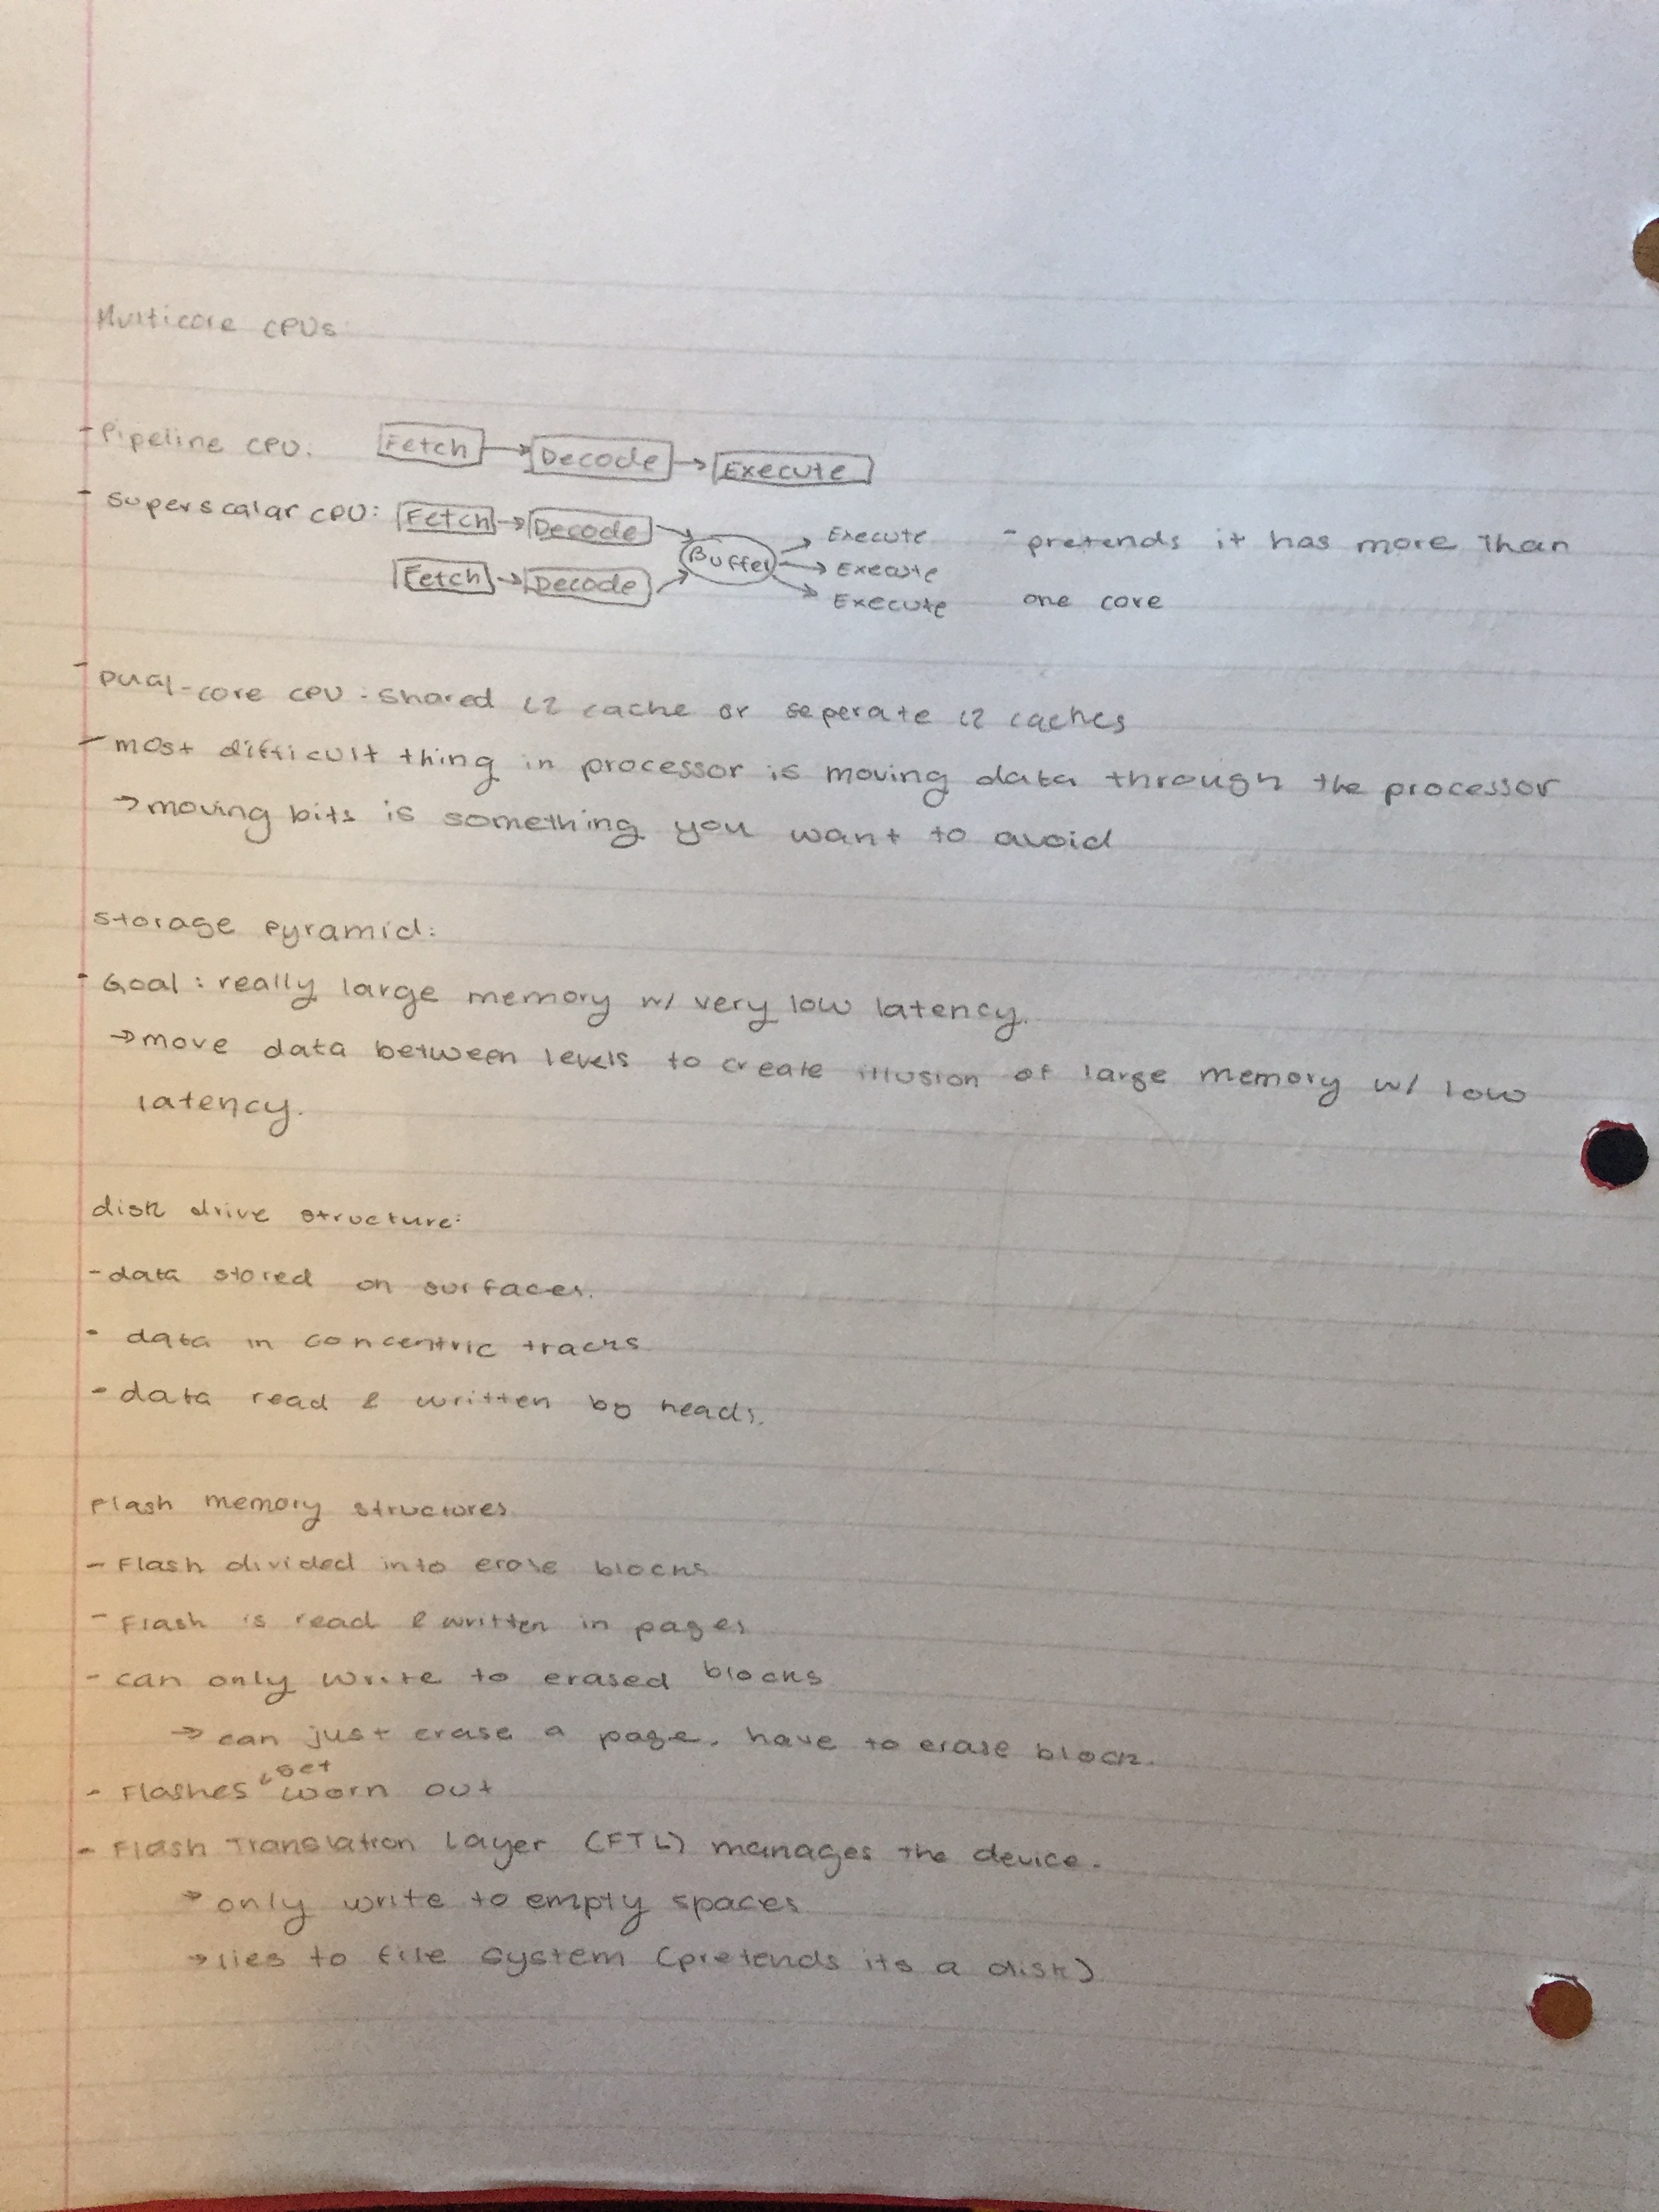 Multicore CPUs
- Pipeline CPU: Fetch → Decode → Execute
- Superscalar CPU: Fetch → Decode → Buffer → Execute - pretends it has more than
Fetch → Decode → Execute
Execute one core
- Dual-core CPU: shared L2 cache or seperate L2 caches
- most difficult thing in processor is moving data through the processor
→ moving bits is something you want to avoid
storage pyramid:
- Goal: really large memory w/ very low latency.
→ move data between levels to create illusion of large memory w/ low
latency.
disk drive structure:
- data stored on surfaces.
- data in concentric tracks
- data read & written by heads.
Flash memory structures
- Flash divided into erase blocks
- Flash is read & written in pages
- can only write to erased blocks
→ can just erase a page. have to erase block.
get
- Flashes worn out
- Flash Translation Layer (FTL) manages the device.
→ only write to empty spaces
→ lies to file system (pretends its a disk)